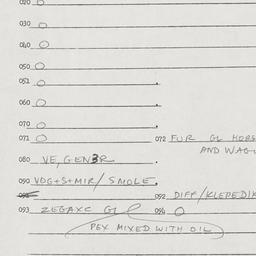 020 O
030 O
040 O
050 O
051
060 O
070 O
071 O 072 FUR GL HORS
AND WAG
080 VE, GEN3R
090 VDG+S+MIR/ SMOLE
092 DIFF/KLEPEDIK
093 ZEGAXC GL 094 O
PEX MIXED WITH OIL